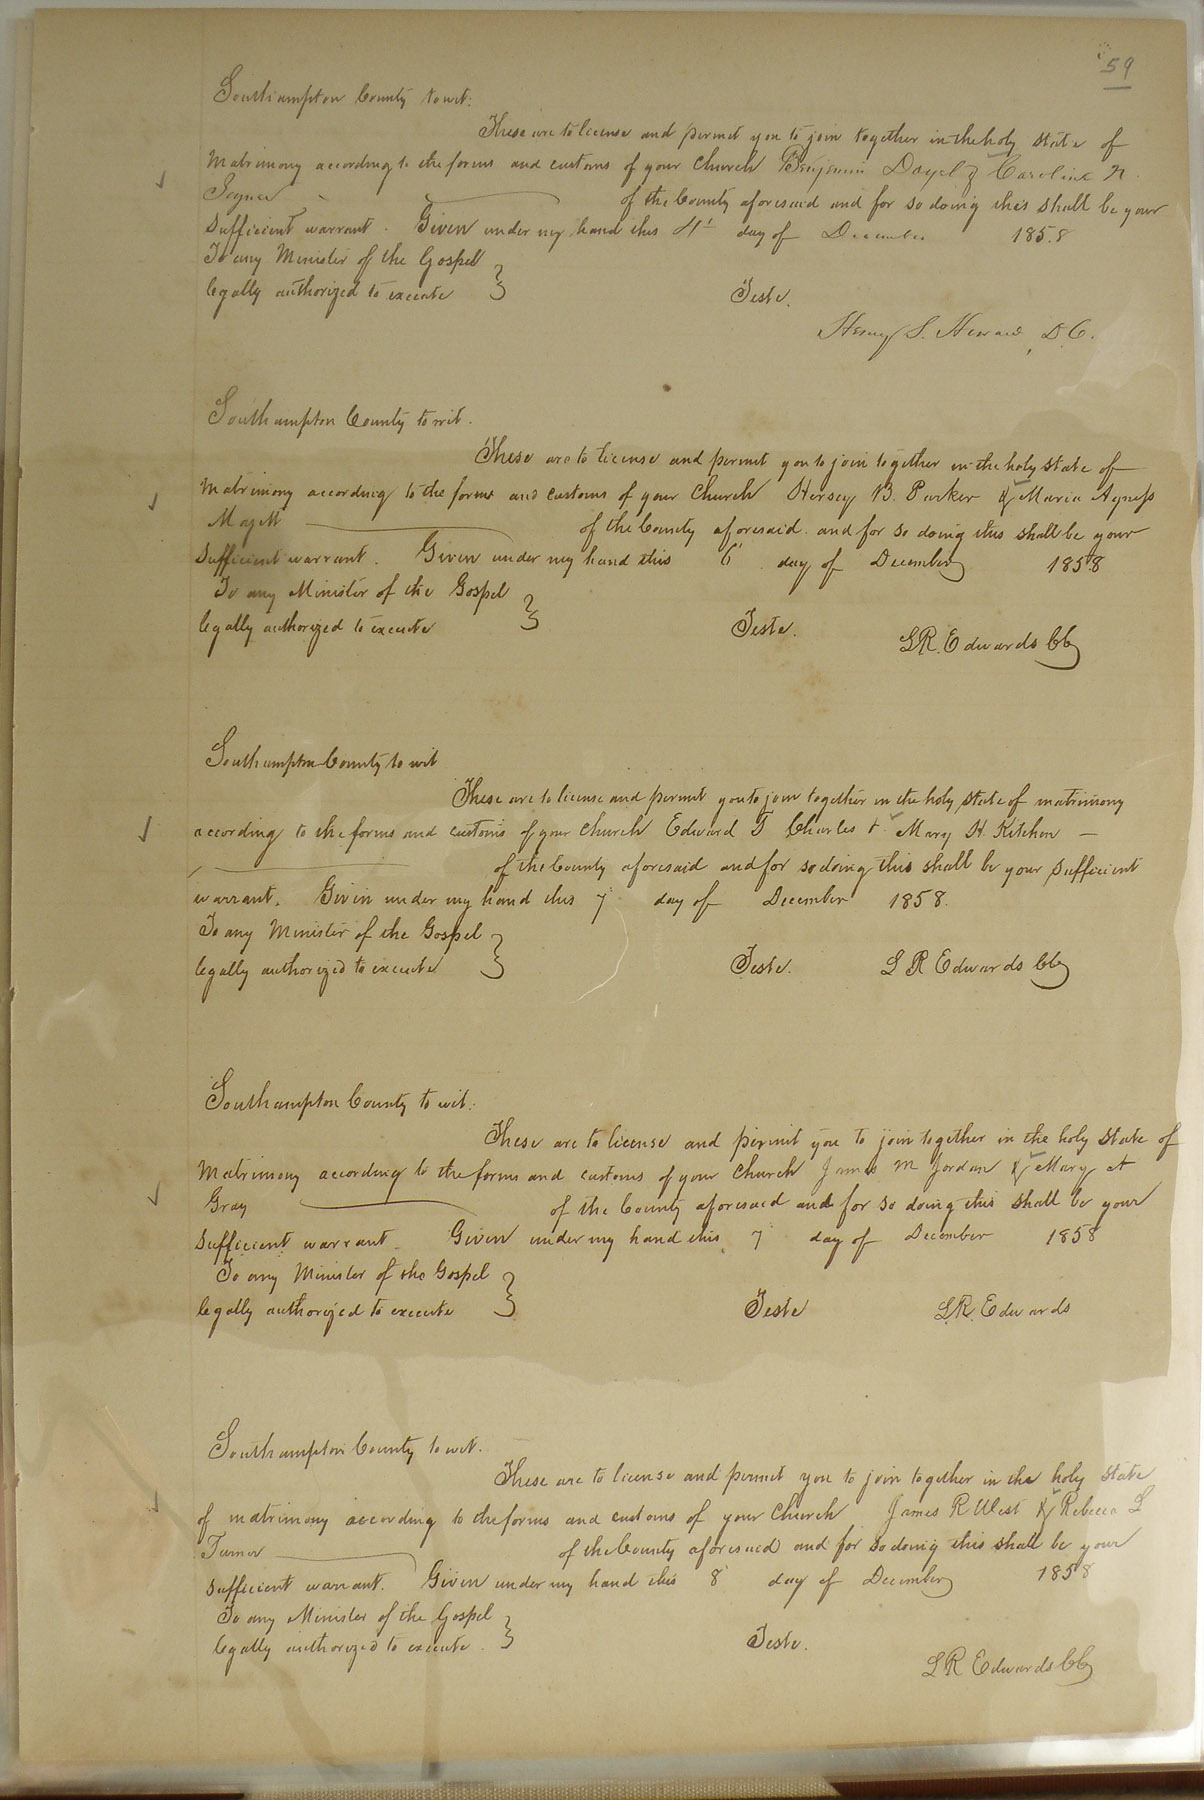 59
Southampton County to wit:
These are to license and permit you to join together in the holy state of
Matrimony according to the forms and customs of your Church Benjamin & Caroline N.
of the County aforesaid and for so doing this shall be your
sufficient warrant. Given under my hand this 4' day of December 1858
To any Minister of the Gospel
legally authorized to execute Teste.
Henry S. D.C.
Southampton County to wit.
These are to license and permit you to join together in the holy state of
Matrimony according to the forms and customs of your Church Hersey B. Parker & Maria Agness
of the County aforesaid. and for so doing this shall be your
sufficient warrant. Given under my hand this 6' day of December 1858
To any Minister of the Gospel
legally authorized to execute Teste.
L R. Edwards CC
Southampton County to wit
These are to license and permit you to join together in the holy state of matrimony
according to the forms and customs of your Church Edward T Charles & Mary H. Kitchen —
of the County aforesaid and for so doing this shall be your sufficient
warrant. Given under my hand this 7' day of December 1858.
To any Minister of the Gospel
legally authorized to execute Teste. L R Edwards CC
Southampton County to wit:
These are to license and permit you to join together in the holy state of
Matrimony according to the forms and customs of your Church James M Jordan & Mary A
Gray of the County aforesaid and for so doing this shall be your
sufficient warrant. Given under my hand this 7' day of December 1858
To any Minister of the Gospel
legally authorized to execute Teste L.R. Edwards
Southampton County to wit.
These are to license and permit you to join together in the holy state
of matrimony according to the forms and customs of your Church James R West & Rebecca L
Turner of the County aforesaid and for so doing this shall be your
sufficient warrant. Given under my hand this 8' day of December 1858
To any Minister of the Gospel
legally authorized to execute. Teste.
L R Edwards CC